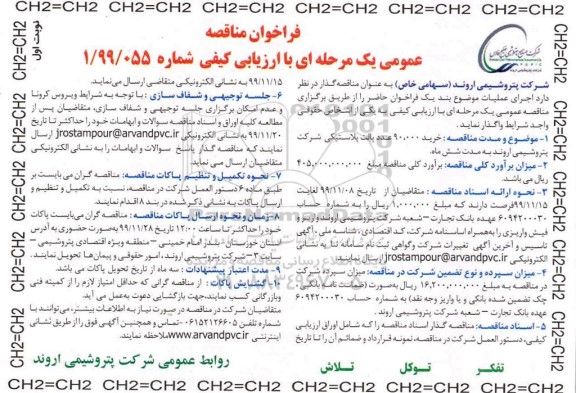 CH2=CH2 CH2=CH2 CH2=CH2 CH2=CH2 CH2=CH2 CH2=CH2 CH2=CH2
نوبت اول
فراخوان مناقصه
عمومی یک مرحله ای با ارزیابی کیفی شماره ۱/۹۹/۰۵۵
شرکت پتروشیمی اروند (سهامی خاص) به عنوان مناقصه‌گذار در نظر
دارد اجرای عملیات موضوع بند یک فراخوان حاضر را از طریق برگزاری
مناقصه عمومی یک مرحله ای با ارزیابی کیفی
واجد شرایط واگذار نماید.
۱- موضوع و مدت مناقصه: خرید ۹۰,۰۰۰ عدد پالت پلاستیکی شرکت
پتروشیمی اروند به مدت شش ماه.
۲- میزان برآورد کلی مناقصه: برآورد کلی مناقصه مبلغ ۴۰۵,۰۰۰,۰۰۰,۰۰۰
ریال می باشد.
۳- نحوه ارائه اسناد مناقصه: متقاضیان از تاریخ ۹۹/۱۱/۰۸ لغایت
۹۹/۱۱/۱۵ فرصت دارند که مبلغ ۱,۰۰۰,۰۰۰ ریال را به شماره حساب
۶۰۹۴۲۰۰۳۰ عهده بانک تجارت - شعبه شرکت پتروشیمی اروند واریز و
فیش واریزی را به همراه اساسنامه شرکت، کد اقتصادی، شناسه ملی، آگهی
تاسیس و آخرین آگهی تغییرات شرکت و گواهی ثبت نام سامانه ثنا به نشانی
الکترونیکی jrostampour@arvandpvc.ir ارسال نمایند.
۴- میزان سپرده و نوع تضمین شرکت در مناقصه: میزان سپرده شرکت
در مناقصه به مبلغ ۱۶,۲۰۰,۰۰۰,۰۰۰ ریال به صورت (ضمانت نامه بانکی،
چک تضمین شده بانکی و یا واریز وجه نقد) به شماره حساب ۶۰۹۴۲۰۰۳۰
عهده بانک تجارت - شعبه شرکت پتروشیمی اروند.
۵- اسناد مناقصه: مناقصه گذار اسناد مناقصه را که شامل اوراق ارزیابی
کیفی، دستور العمل شرکت در مناقصه، نمونه قرارداد و ضمائم آن را تا تاریخ
۹۹/۱۱/۱۵ به نشانی الکترونیکی متقاضی ارسال می‌نمایند.
۶- جلسه توجیهی و شفاف سازی: با توجه به شرایط ویروس کرونا
و عدم امکان برگزاری جلسه توجیهی و شفاف سازی، متقاضیان پس از
مطالعه کلیه اوراق و اسناد مناقصه سوالات و ابهامات خود را حداکثر تا تاریخ
۹۹/۱۱/۲۰ به نشانی الکترونیکی jrostampour@arvandpvc.ir ارسال
نمایند که مناقصه گذار پاسخ سوالات و ابهامات را به نشانی الکترونیکی
متقاضیان ارسال می نماید.
۷- نحوه تکمیل و تنظیم پاکات مناقصه: مناقصه گران می بایست بر
طبق ماده ۶ دستور العمل شرکت در مناقصه، نسبت به تکمیل و تنظیم و
ارسال پاکات به نشانی ذکر شده در بند ۸ اقدام نمایند.
۸- زمان و نحوه ارسال پاکات مناقصه: مناقصه گران می‌بایست پاکات
خود را حداکثر تا ساعت ۱۲:۰۰ تاریخ ۹۹/۱۱/۲۸ به صورت حضوری به آدرس
استان خوزستان - بندر امام خمینی - منطقه ویژه اقتصادی پتروشیمی -
سایت ۲ - شرکت پتروشیمی اروند، امور حقوقی و پیمان‌ها تحویل نمایند.
۹- مدت اعتبار پیشنهادات: سه ماه از تاریخ تحویل پاکات می باشد.
۱۰- گشایش پاکات: از مناقصه گرانی که حداقل امتیاز لازم را از کمیته فنی
وبازرگانی کسب نمایند، جهت بازگشایی دعوت به‌عمل می آید.
متقاضیان شرکت در مناقصه در صورت نیاز به اطلاعات بیشتر، می‌توانند با
شماره تلفن ۰۶۱۵۲۱۲۶۶۰۵ تماس و همچنین آگهی فوق را از طریق نشانی
اینترنتی www.arvandpvc.ir ملاحظه نمایند.
تفکر توکل تلاش
روابط عمومی شرکت پتروشیمی اروند
CH2=CH2 CH2=CH2 CH2=CH2 CH2=CH2 CH2=CH2 CH2=CH2 CH2=CH2